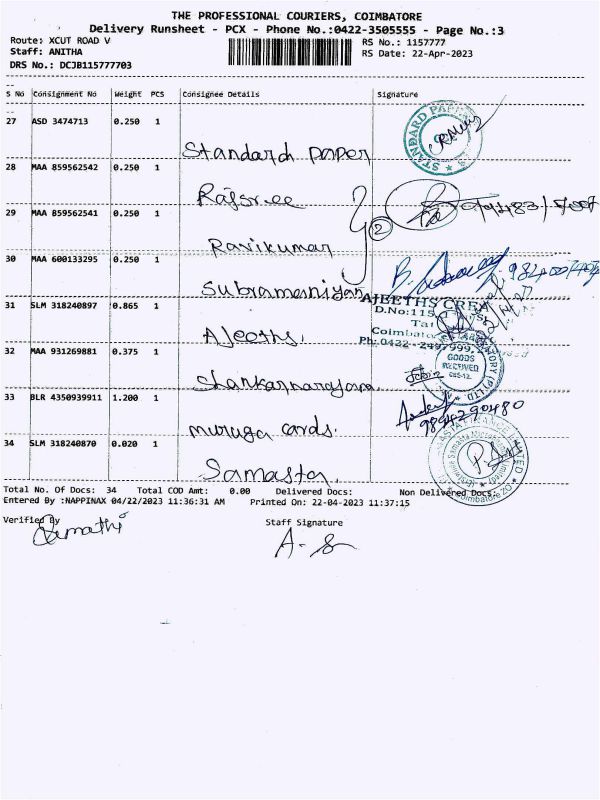 THE PROFESSIONAL COURIERS, COIMBATORE
Delivery Runsheet - PCX - Phone No.:0422-3505555 - Page No.:3
Route: XCUT ROAD V
RS No.: 1157777
Staff: ANITHA
RS Date: 22-Apr-2023
DRS No.: DCJB115777703
S No Consignment No Weight PCS Consignee Details Signature
27 ASD 3474713 0.250 1
Standard paper
STANDARD PAPER
28 MAA 859562542 0.250 1
Rajsree
29 MAA 859562541 0.250 1
Ravikumar
2
30 MAA 600133295 0.250 1
Subramaniyan
31 SLM 318240897 0.865 1
AJEETHS
D.No:115
Ajeeths.
Coimbatore
Ph:0422 - 2497999
32 MAA 931269881 0.375 1
Shankarnarayana
GOODS
RECEIVED
33 BLR 4350939911 1.200 1
9894290480
muruga cards.
34 SLM 318240870 0.020 1
Samasta
Coimbatore
Total No. Of Docs: 34 Total COD Amt: 0.00 Delivered Docs: Non Delivered Docs:
Entered By :NAPPINAX 04/22/2023 11:36:31 AM Printed On: 22-04-2023 11:37:15
Verified By
Staff Signature